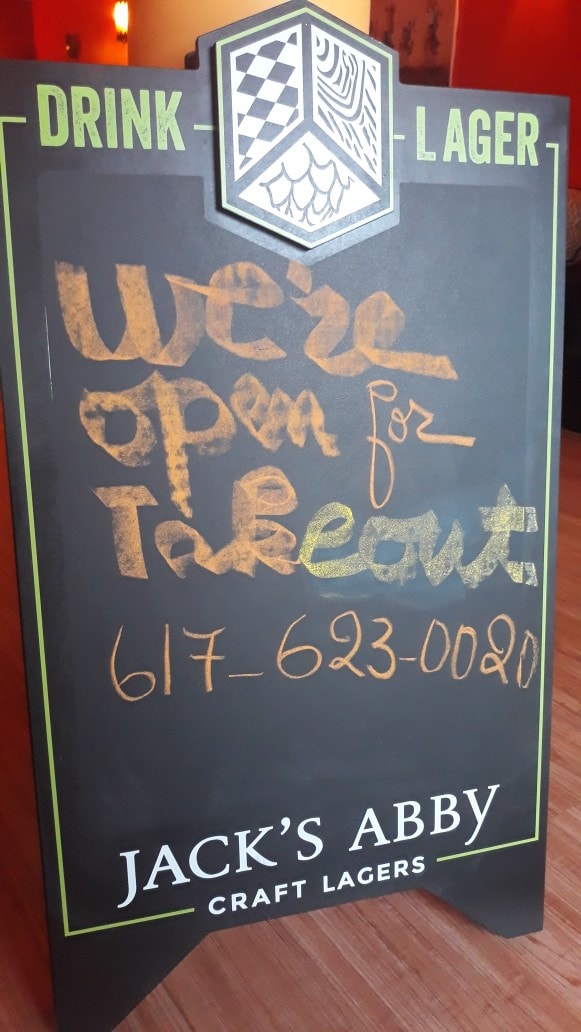 DRINK LAGER
We're
open for
Takeout
617-623-0020
JACK'S ABBY
CRAFT LAGERS